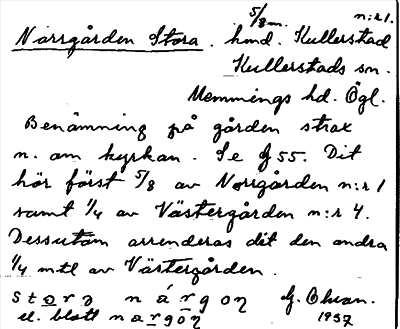 5/8 m. n:r 1.
Norrgården Stora. hmd. Kullerstad
Kullerstads sn.
Memmings hd. Ögl.
Benämning på gården strax
n. om kyrkan. Se G 55. Dit
hör först 5/8 av Norrgården n:r 1
samt 1/4 av Västergården n:r 4.
Dessutom arrenderas dit den andra
1/4 mtl av Västergården.
stora nárgon G. Ohson.
el. blott nargōn 1937